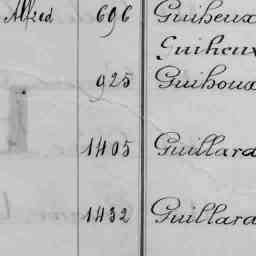 Alfred 696 Guiheux
Guiheux
925 Guihoux
1405 Guillard
1432 Guillard